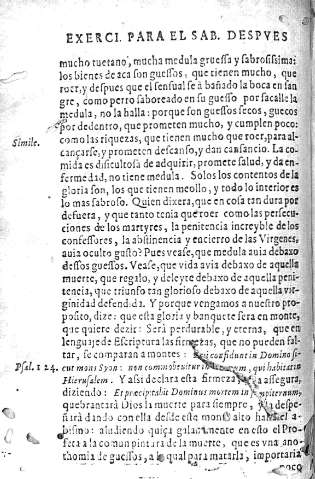 EXERCI. PARA EL SAB. DESPVES
mucho tuetano, mucha medula gruessa y sabrosissima:
los bienes de aca son guessos, que tienen mucho, que
roer, y despues que el sensual se à bañado la boca en san
gre, como perro saboreado en su guesso por sacalle la
medula, no la halla: porque son guessos secos, guecos
por dedentro, que prometen mucho, y cumplen poco:
Simile.
como las riquezas, que tienen mucho que roer, para al-
cançarse, y prometen descanso, y dan cansancio. La co-
mida es dificultosa de adquirir, promete salud, y da en-
fermedad, no tiene medula. Solos los contentos de la
gloria son, los que tienen meollo, y todo lo interior es
lo mas sabroso. Quien dixera, que en cosa tan dura por
defuera, y que tanto tenia que roer como las persecu-
ciones de los martyres, la penitencia increyble de los
confessores, la abstinencia y encierro de las Virgenes,
auia oculto gusto? Pues vease, que medula auia debaxo
dessos guessos. Vease, que vida avia debaxo de aquella
muerte, que regalo, y deleyte debaxo de aquella peni-
tencia, que triunfo tan glorioso debaxo de aquella vir-
ginidad defendida. Y porque vengamos a nuestro pro-
posito, dize: que esta gloria y banquete sera en monte,
que quiere dezir: Será perdurable, y eterna, que en
lenguaje de Escriptura las firmezas, que no pueden fal-
tar, se comparan a montes: confidunt in Domino si
Psal. 124.
cut mons Syon: non commobebitur in qui habitat in
Hierusalem. Y assi declara esta firmeza, y la assegura,
diziendo: Et præcipitabit Dominus mortem in sempiternum,
quebrantará Dios la muerte para siempre, la despe-
ñará dando con ella desde este monte alto hasta el a-
bismo: aludiendo quiça galanamente en esto el Pro-
feta a la comun pintura de la muerte, que es vna ano-
thomia de guessos, a la qual para matarla, importaria
poco